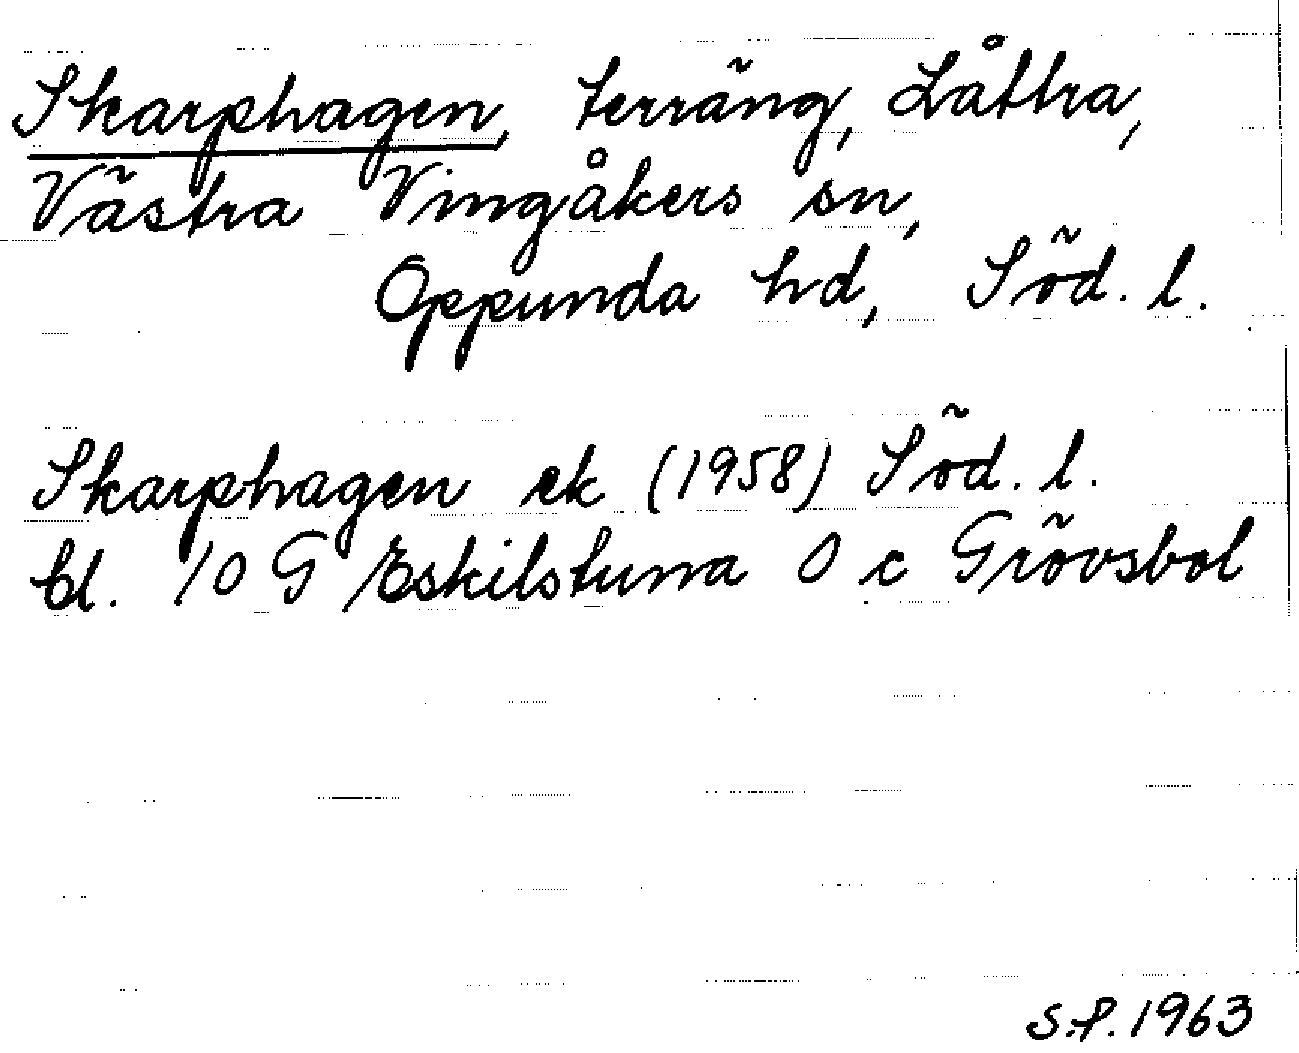 Skarphagen, terräng, Låttra,
Västra Vingåkers sn,
Oppunda hd, Söd. l.
Skarphagen ek (1958) Söd. l.
bl. 10 G Eskilstuna 0 c Grövsbol
S.P. 1963